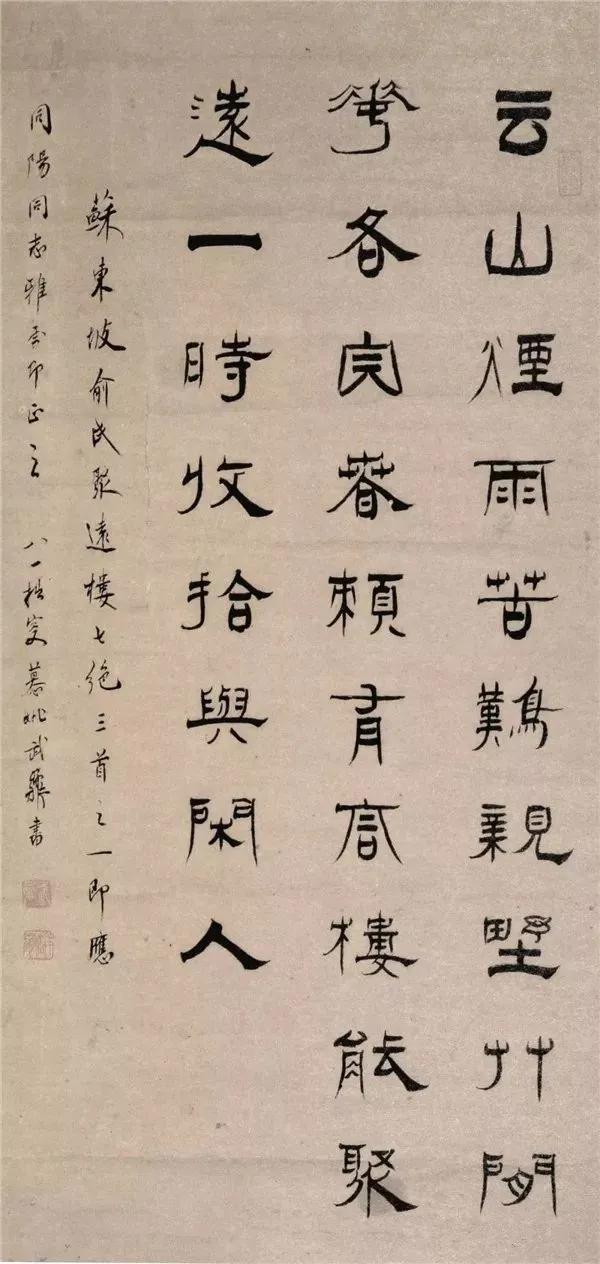 云山煙雨苦難親野艸閒
華各自春賴有高樓能聚
遠一時收拾與閑人
蘇東坡俞氏聚遠樓七絕三首之一即應
同陽同志雅屬即正之 八一拙叟慕姚武書